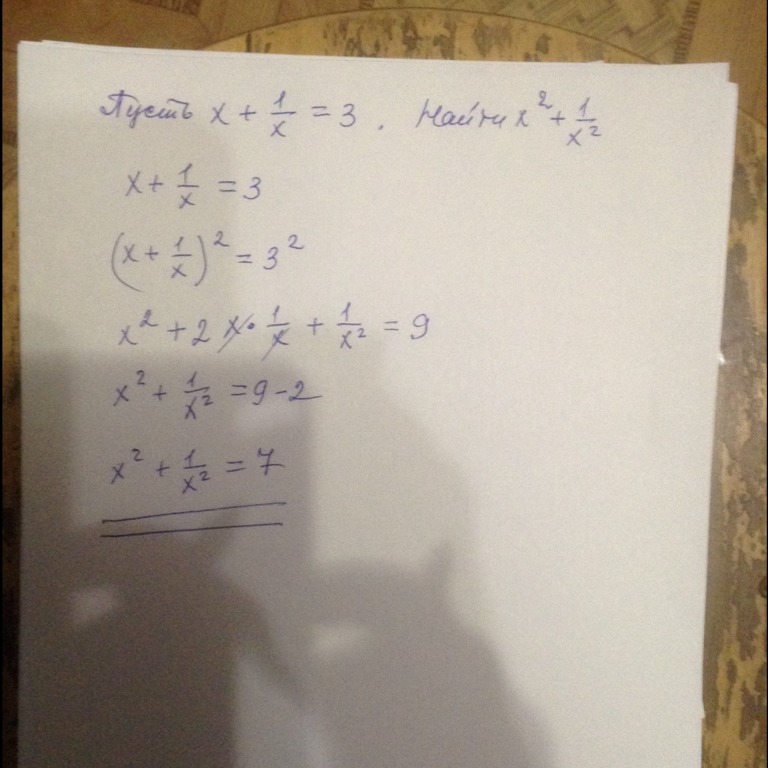 Пусть x + 1/x = 3. Найти x² + 1/x²
x + 1/x = 3
(x + 1/x)² = 3²
x² + 2 x · 1/x + 1/x² = 9
x² + 1/x² = 9 - 2
x² + 1/x² = 7